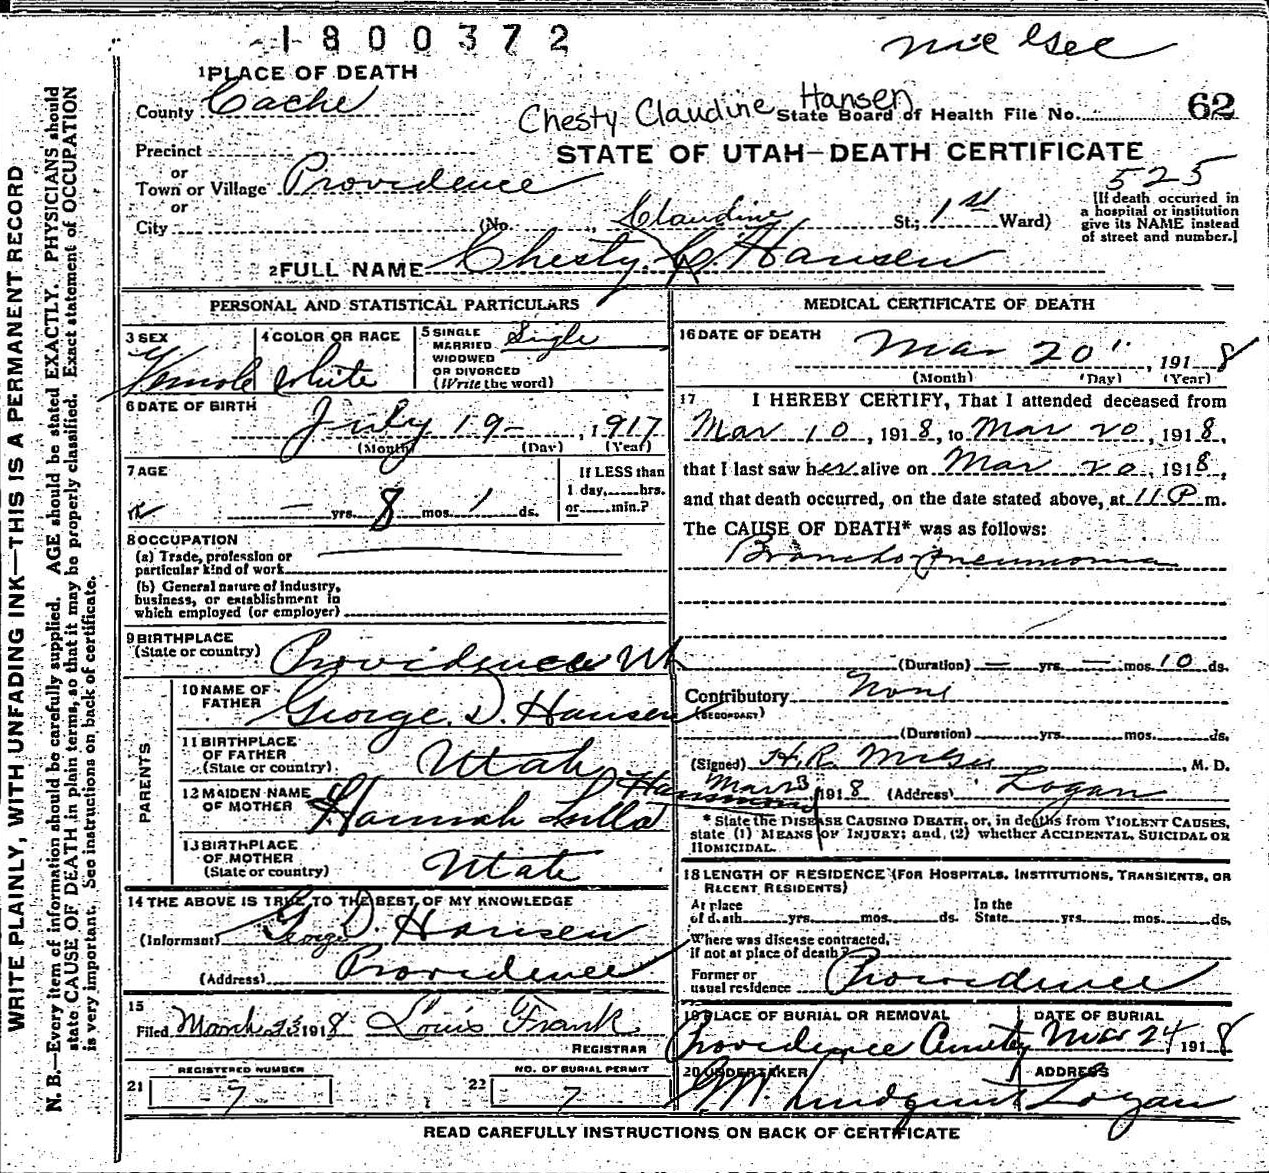 1800372
McGee
1 PLACE OF DEATH
County Cache
Chesty Claudine Hansen
State Board of Health File No. 62
Precinct
STATE OF UTAH—DEATH CERTIFICATE
or
Town or Village Providence
525
or
City (No. , Claudine St.; 1st Ward)
[If death occurred in
a hospital or institution
give its NAME instead
of street and number.]
2 FULL NAME Chesty C. Hansen
PERSONAL AND STATISTICAL PARTICULARS
3 SEX
Female
4 COLOR OR RACE
White
5 SINGLE
MARRIED
WIDOWED
OR DIVORCED
(Write the word)
Single
6 DATE OF BIRTH
July 19 - , 1917
(Month) (Day) (Year)
7 AGE
— yrs. 8 mos. 1 ds.
If LESS than
1 day,......hrs.
or......min.?
8 OCCUPATION
(a) Trade, profession or
particular kind of work
(b) General nature of industry,
business, or establishment in
which employed (or employer)
9 BIRTHPLACE
(State or country) Providence Ut
PARENTS
10 NAME OF
FATHER George D. Hansen
11 BIRTHPLACE
OF FATHER
(State or country) Utah
12 MAIDEN NAME
OF MOTHER Hannah
13 BIRTHPLACE
OF MOTHER
(State or country) Utah
14 THE ABOVE IS TRUE TO THE BEST OF MY KNOWLEDGE
(Informant) Geo D. Hansen
George
(Address) Providence
15
Filed March 23 1918 Louis Frank
REGISTRAR
REGISTERED NUMBER
21 7
NO. OF BURIAL PERMIT
22 7
MEDICAL CERTIFICATE OF DEATH
16 DATE OF DEATH
Mar 20 , 1918
(Month) (Day) (Year)
17 I HEREBY CERTIFY, That I attended deceased from
Mar 10, 1918, to Mar 20, 1918,
that I last saw her alive on Mar 20, 1918,
and that death occurred, on the date stated above, at 11 P. m.
The CAUSE OF DEATH* was as follows:
Broncho pneumonia
(Duration) — yrs. — mos. 10 ds.
Contributory None
(SECONDARY)
(Duration) yrs. mos. ds.
(Signed) H.R. McGee, M. D.
Mar 1918 (Address) Logan
* State the DISEASE CAUSING DEATH, or, in deaths from VIOLENT CAUSES,
state (1) MEANS OF INJURY; and, (2) whether ACCIDENTAL, SUICIDAL OR
HOMICIDAL.
18 LENGTH OF RESIDENCE (FOR HOSPITALS, INSTITUTIONS, TRANSIENTS, OR
RECENT RESIDENTS)
At place
of death yrs. mos. ds.
In the
State yrs. mos. ds.
Where was disease contracted,
if not at place of death?
Former or
usual residence Providence
19 PLACE OF BURIAL OR REMOVAL
Providence Cemetery
DATE OF BURIAL
Mar 24, 1918
20 UNDERTAKER
Lindquist
ADDRESS
Logan
READ CAREFULLY INSTRUCTIONS ON BACK OF CERTIFICATE
WRITE PLAINLY, WITH UNFADING INK—THIS IS A PERMANENT RECORD
N. B.—Every item of information should be carefully supplied. AGE should be stated EXACTLY. PHYSICIANS should
state CAUSE OF DEATH in plain terms, so that it may be properly classified. Exact statement of OCCUPATION
is very important. See instructions on back of certificate.